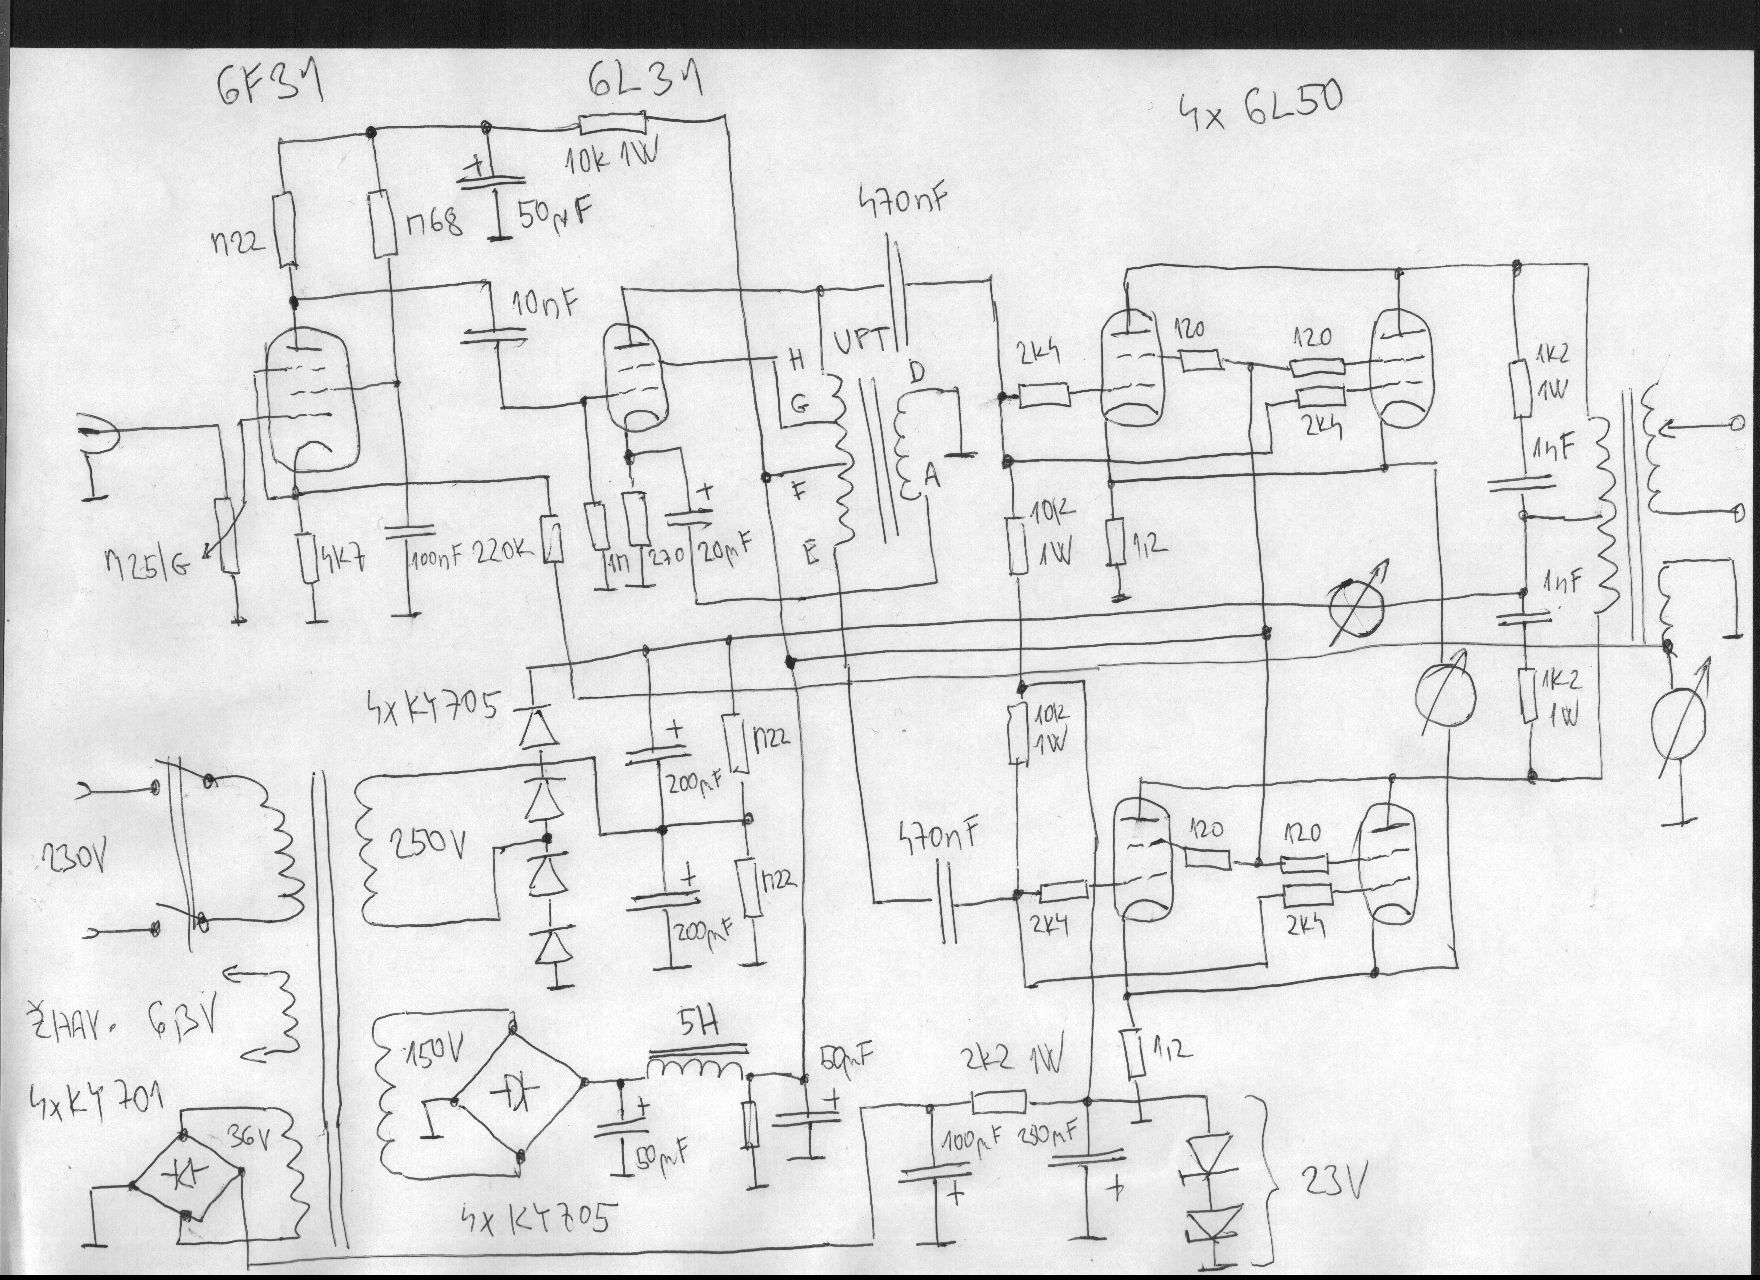 6F31
6L31
4x 6L50
10k 1W
50µF
M22
M68
470nF
10nF
UPT
H
G
F
E
D
A
2k4
120
120
2k4
1k2
1W
1nF
10k
1W
1,2
1nF
M25/G
4k7
100nF
220K
1M
270
20µF
4xKY705
M22
200µF
10k
1W
1k2
1W
230V
250V
M22
200µF
470nF
2k4
120
120
2k4
ŽHAV. 6,3V
150V
5H
50µF
2k2 1W
1,2
4xKY701
36V
50µF
100µF
200µF
23V
4xKY705